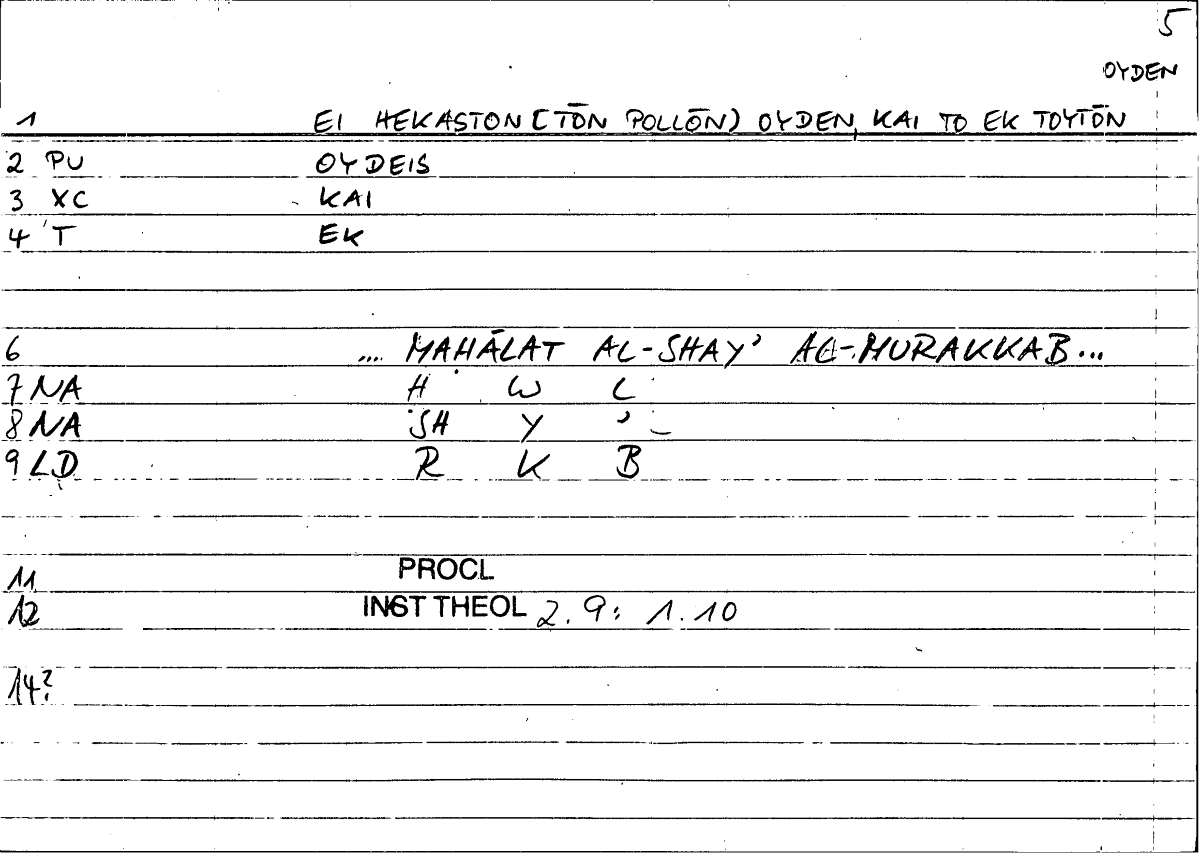 5
OYDEN
1 EI HEKASTON [TŌN POLLŌN) OYDEN, KAI TO EK TOYTŌN
2 PU OYDEIS
3 XC KAI
4 'T EK
6 .... MAHĀLAT AL-SHAY' AL-MURAKKAB...
7 NA H W L
8 NA SH Y '
9 LD R K B
11 PROCL
12 INST THEOL 2.9: 1.10
14?